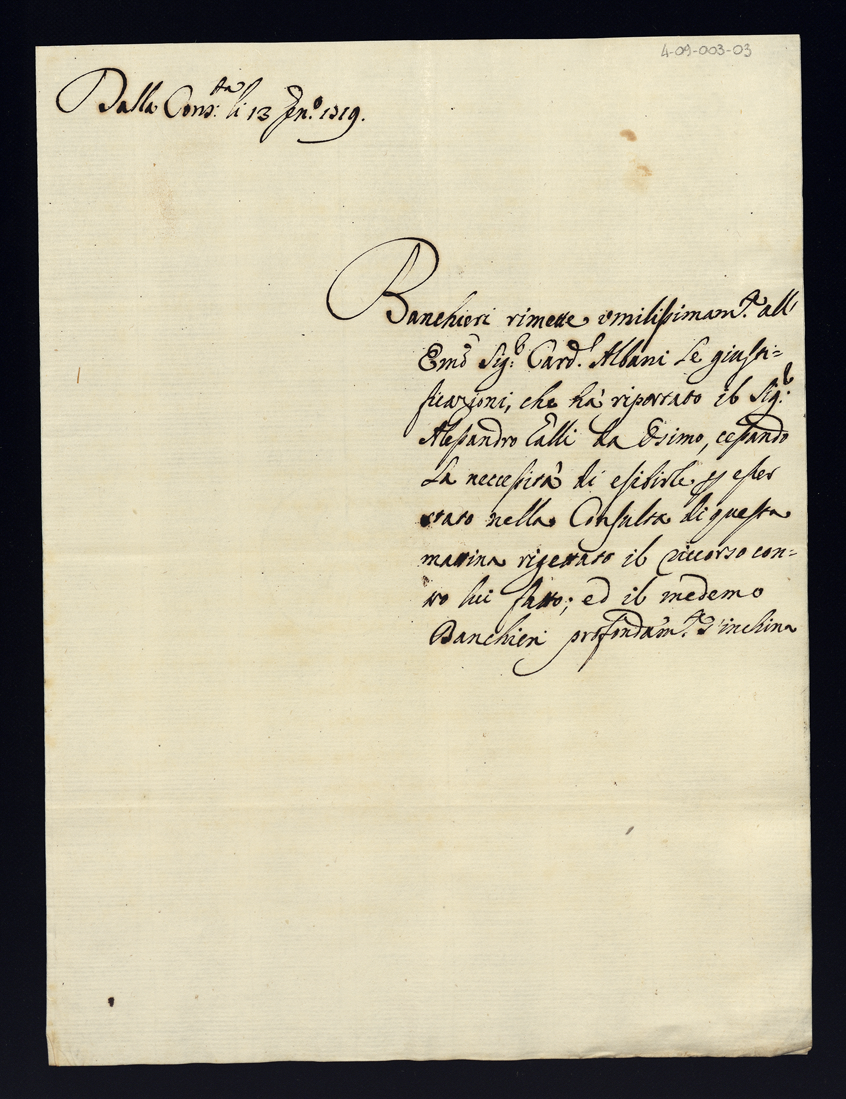 4-09-003-03
Dalla Cons:ta li 13 Gen.o 1719.
Banchieri rimette umilissimam.te all'
Emo Sig:r Card.l Albani le giusti=
ficazioni, che hà riportato il Sig:r
Alessandro Galli da Osimo, cessando
la necessità di esibirle p esser
stato nella Consulta di questa
mattina rigettato il riccorso con=
tro lui fatto; ed il medemo
Banchieri profondam.te s'inchina